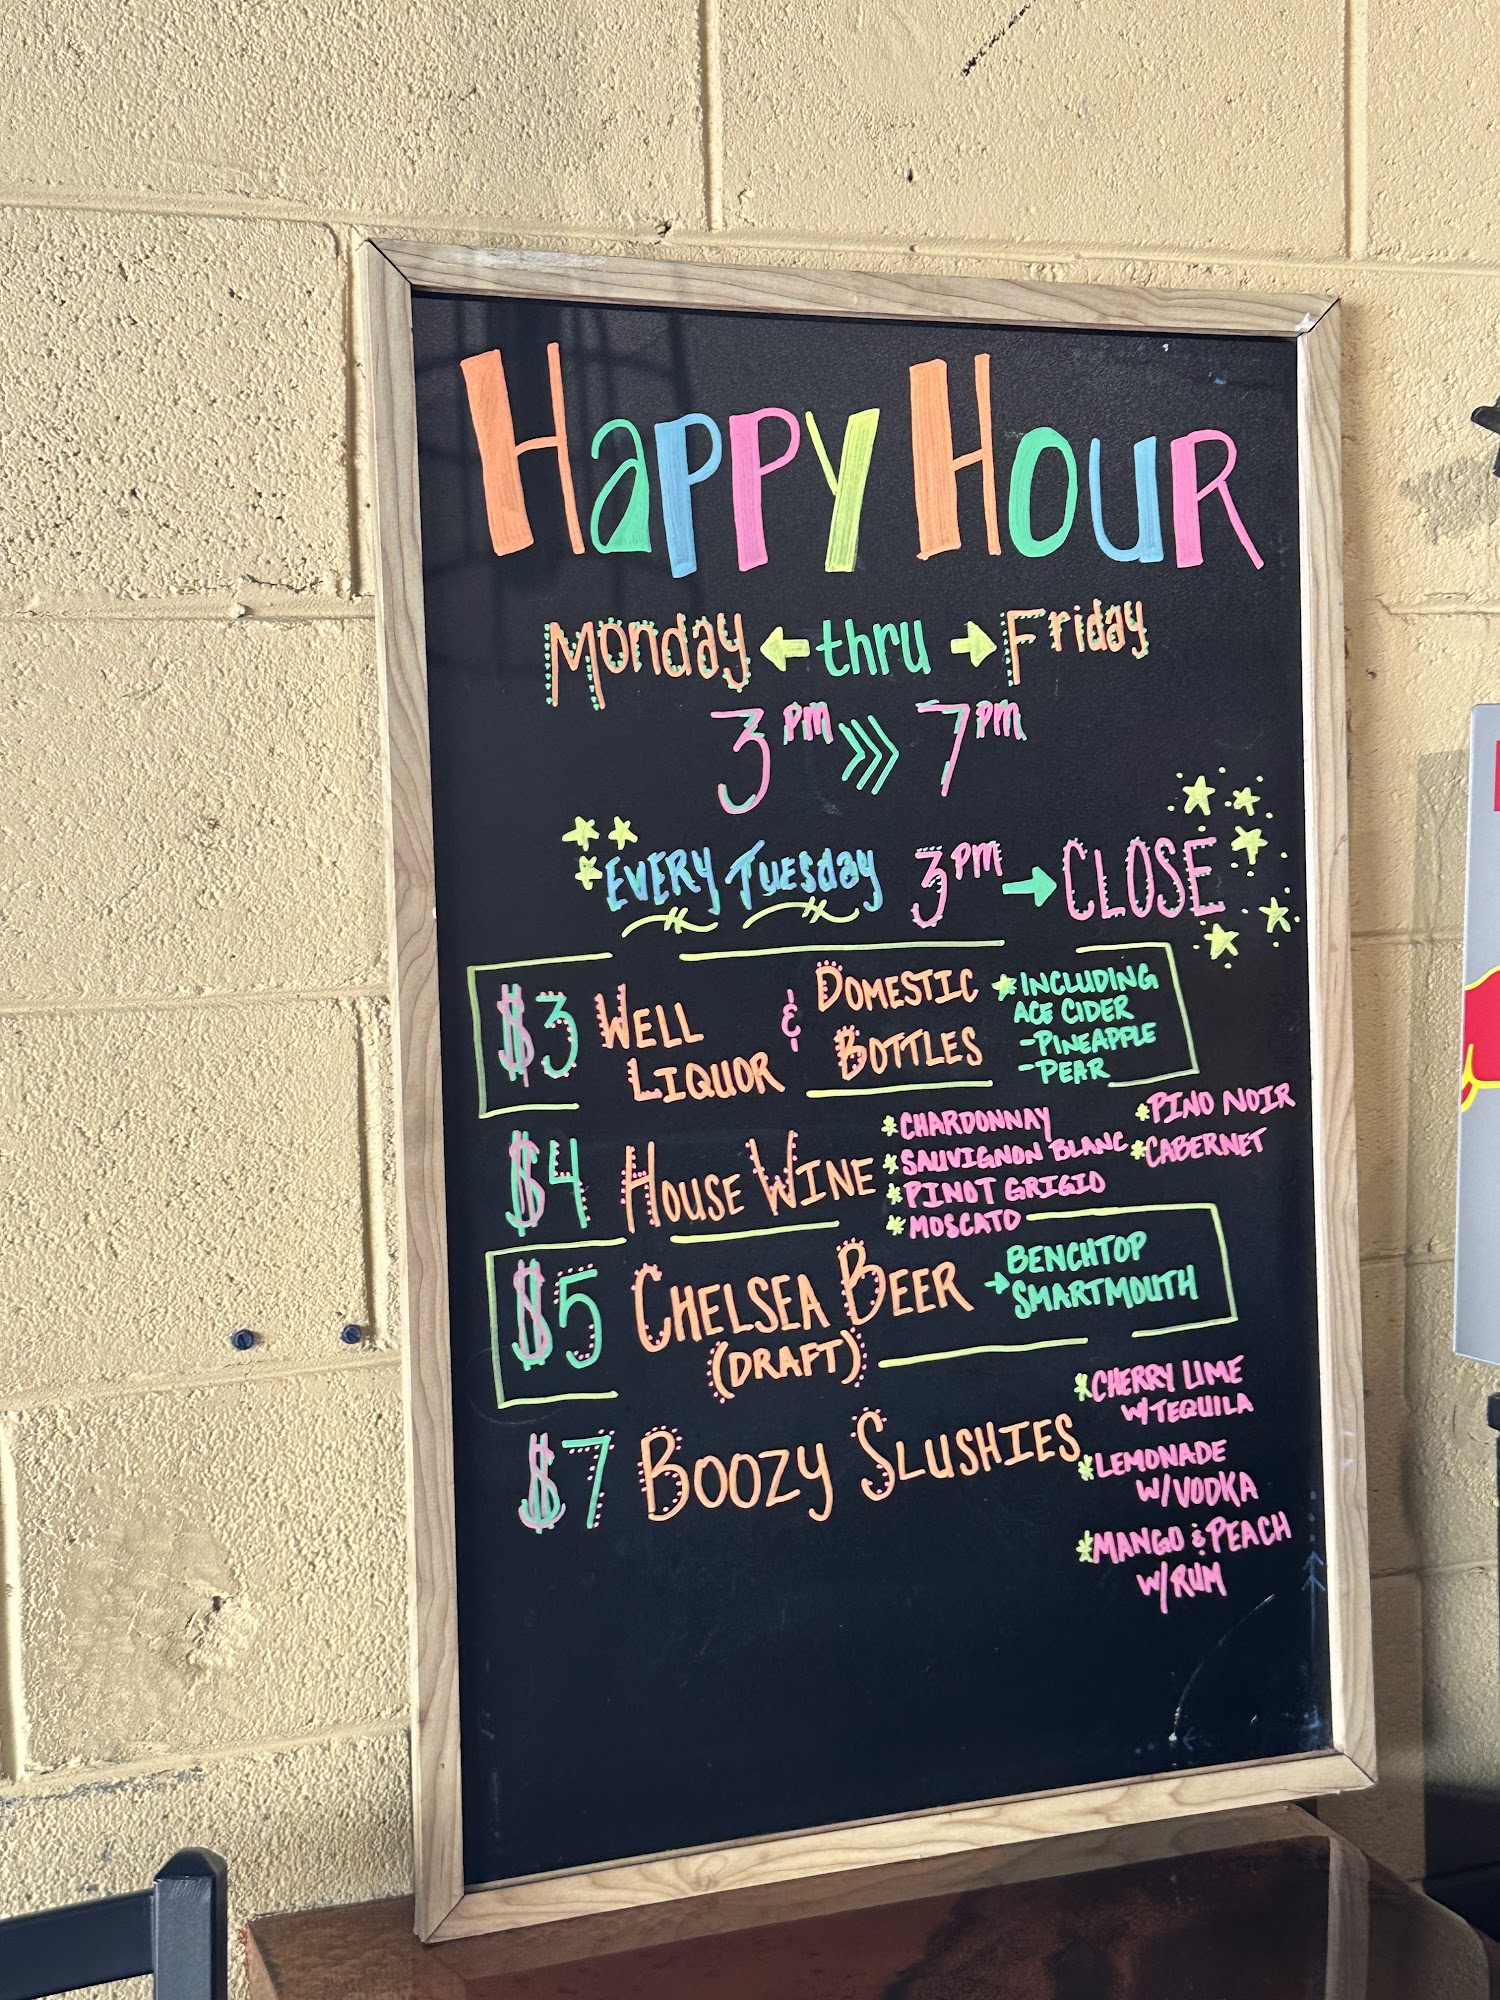 Happy Hour
Monday thru Friday
3pm 7pm
EVERY Tuesday 3pm CLOSE
$3 WELL LIQUOR & DOMESTIC BOTTLES
*INCLUDING
ACE CIDER
-PINEAPPLE
-PEAR
$4 HOUSE WINE
*CHARDONNAY
*SAUVIGNON BLANC
*PINOT GRIGIO
*MOSCATO
*PINO NOIR
*CABERNET
$5 CHELSEA BEER
(DRAFT)
BENCHTOP
SMARTMOUTH
$7 BOOZY SLUSHIES
*CHERRY LIME
W/TEQUILA
*LEMONADE
W/VODKA
*MANGO & PEACH
W/RUM